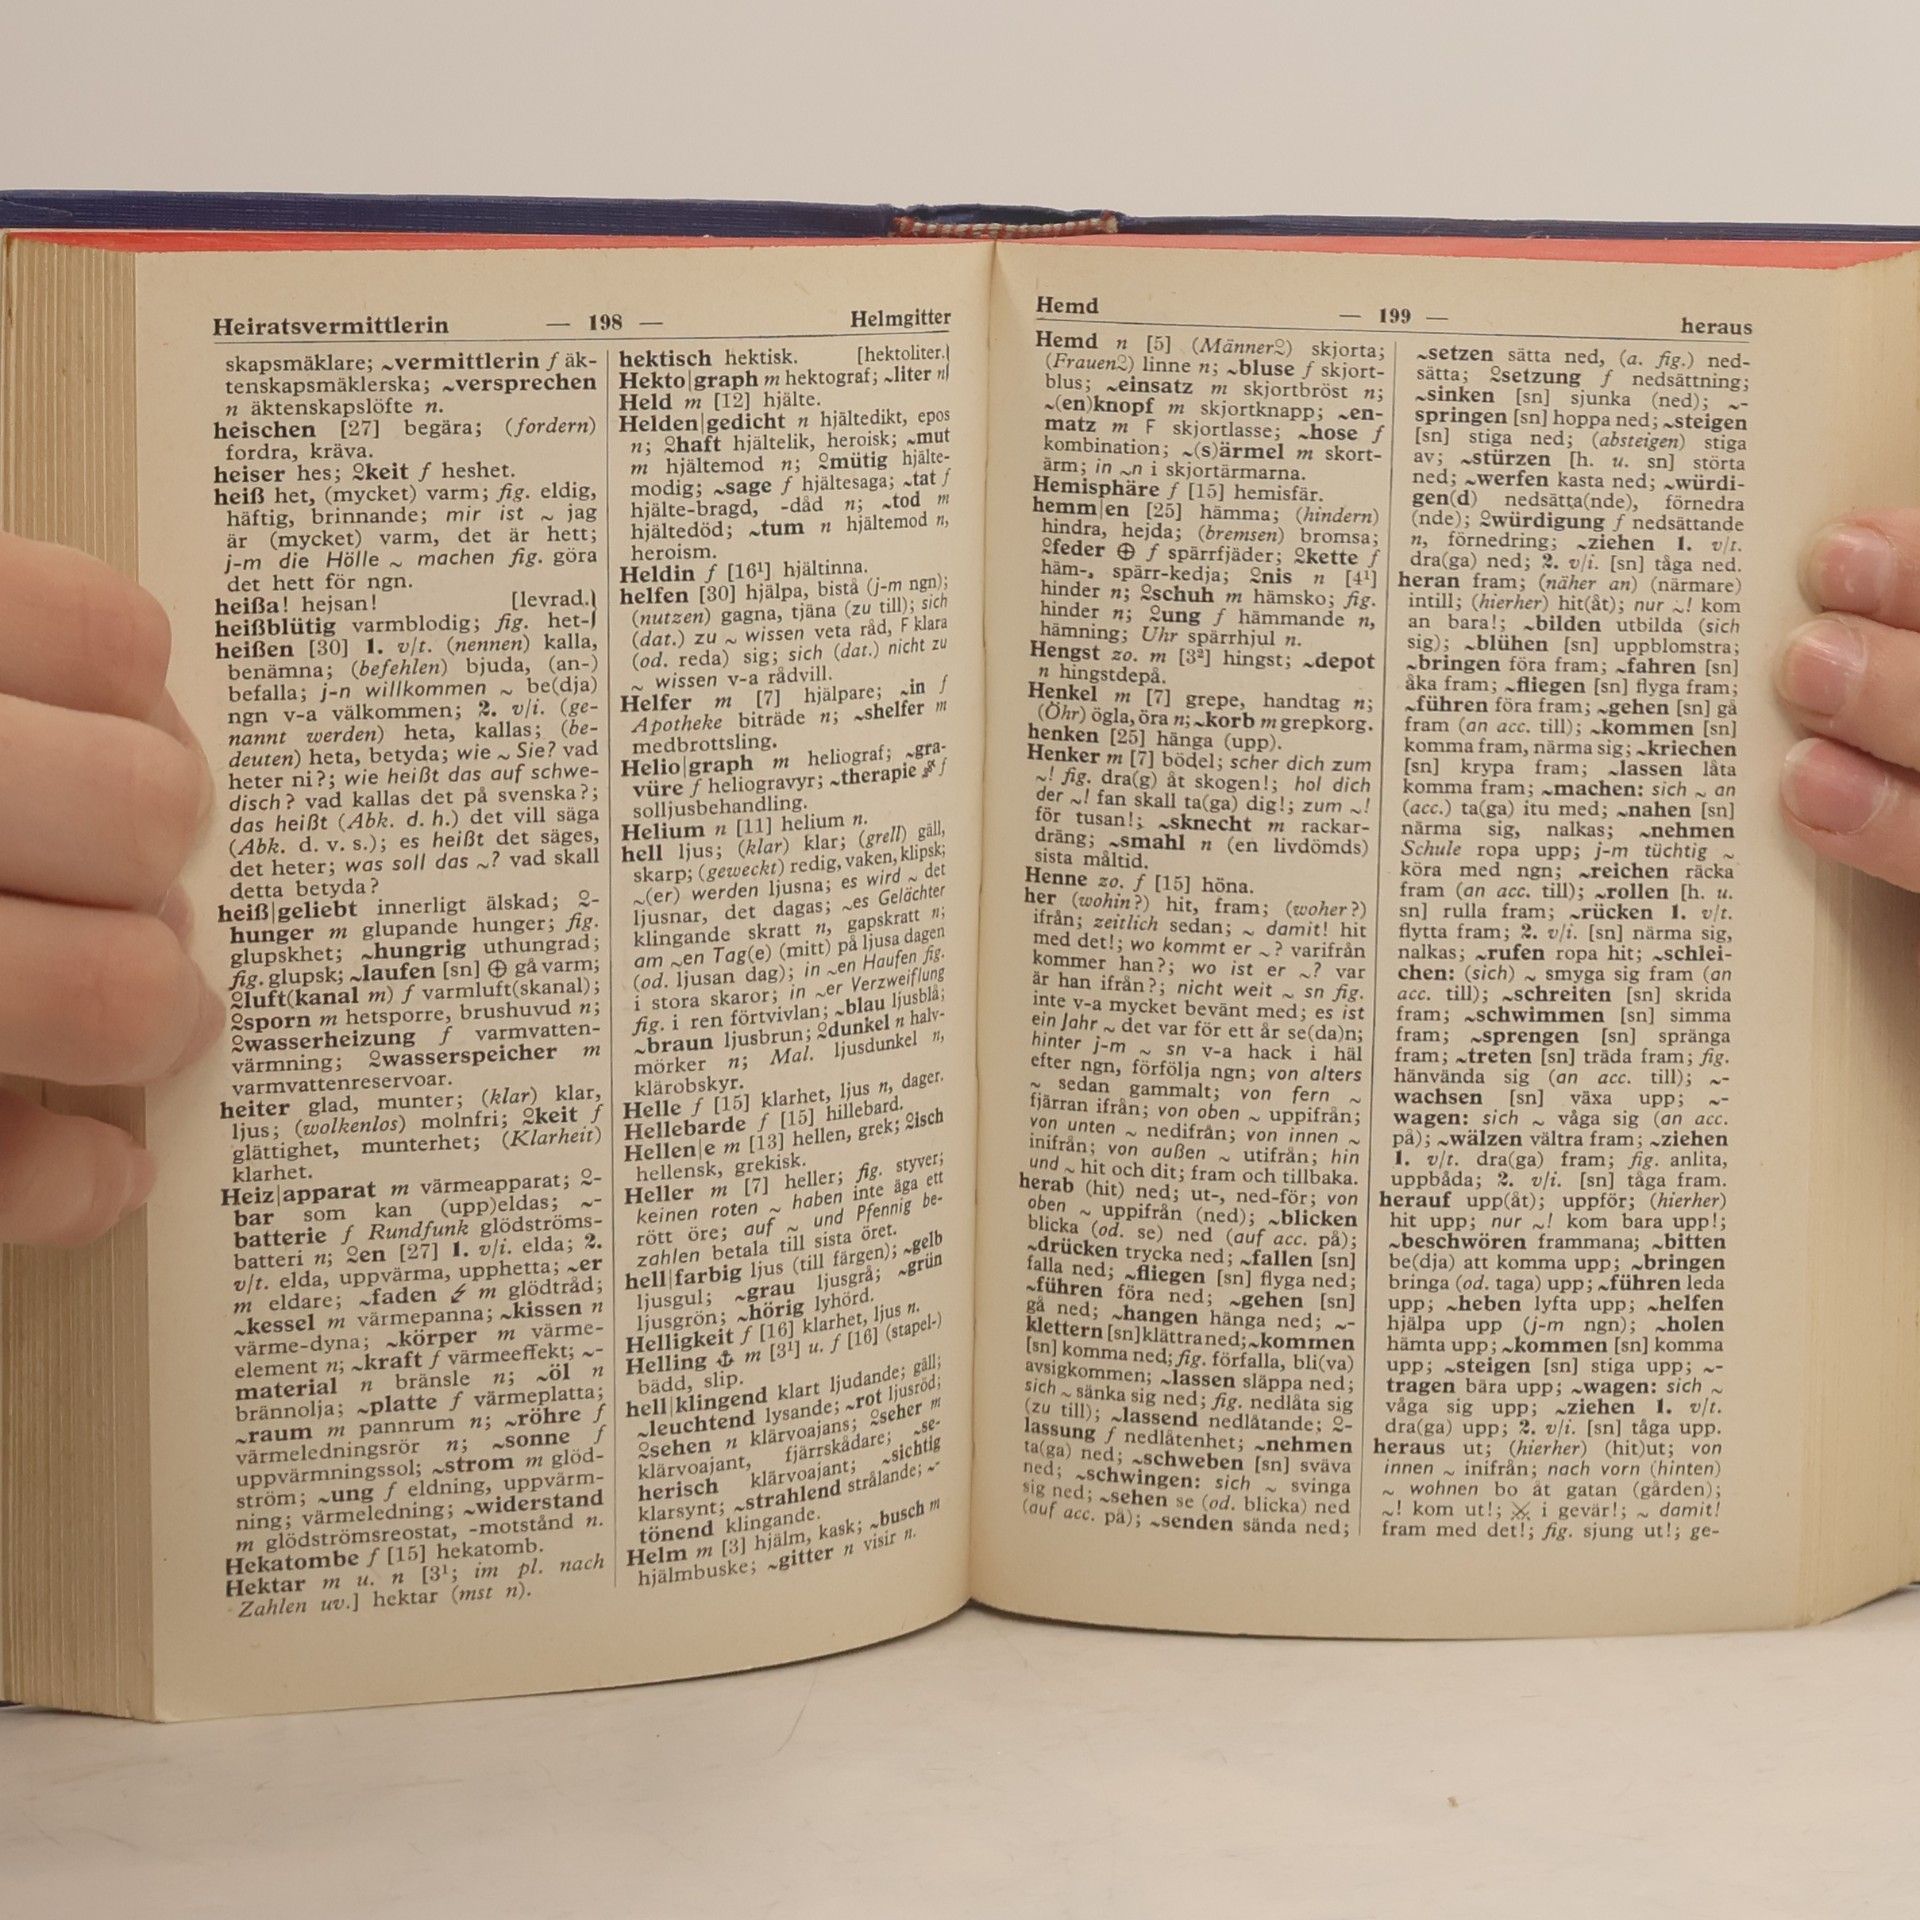 Heiratsvermittlerin — 198 — Helmgitter
skapsmäklare; ~vermittlerin f äk-
tenskapsmäklerska; ~versprechen
n äktenskapslöfte n.
heischen [27] begära; (fordern)
fordra, kräva.
heiser hes; ♀keit f heshet.
heiß het, (mycket) varm; fig. eldig,
häftig, brinnande; mir ist ~ jag
är (mycket) varm, det är hett;
j-m die Hölle ~ machen fig. göra
det hett för ngn.
heißa! hejsan! [levrad.]
heißblütig varmblodig; fig. het-]
heißen [30] 1. v/t. (nennen) kalla,
benämna; (befehlen) bjuda, (an-)
befalla; j-n willkommen ~ be(dja)
ngn v-a välkommen; 2. v/i. (ge-
nannt werden) heta, kallas; (be-
deuten) heta, betyda; wie ~ Sie? vad
heter ni?; wie heißt das auf schwe-
disch? vad kallas det på svenska?;
das heißt (Abk. d. h.) det vill säga
(Abk. d. v. s.); es heißt det säges,
det heter; was soll das ~? vad skall
detta betyda?
heiß|geliebt innerligt älskad; ♀-
hunger m glupande hunger; fig.
glupskhet; ~hungrig uthungrad;
fig. glupsk; ~laufen [sn] ⊕ gå varm;
♀luft(kanal m) f varmluft(skanal);
♀sporn m hetsporre, brushuvud n;
♀wasserheizung f varmvatten-
värmning; ♀wasserspeicher m
varmvattenreservoar.
heiter glad, munter; (klar) klar,
ljus; (wolkenlos) molnfri; ♀keit f
glättighet, munterhet; (Klarheit)
klarhet.
Heiz|apparat m värmeapparat; ♀-
bar som kan (upp)eldas; ~-
batterie f Rundfunk glödströms-
batteri n; ♀en [27] 1. v/i. elda; 2.
v/t. elda, uppvärma, upphetta; ~er
m eldare; ~faden ⚡ m glödtråd;
~kessel m värmepanna; ~kissen n
värme-dyna; ~körper m värme-
element n; ~kraft f värmeeffekt; ~-
material n bränsle n; ~öl n
brännolja; ~platte f värmeplatta;
~raum m pannrum n; ~röhre f
värmeledningsrör n; ~sonne f
uppvärmningssol; ~strom m glöd-
ström; ~ung f eldning, uppvärm-
ning; värmeledning; ~widerstand
m glödströmsreostat, -motstånd n.
Hekatombe f [15] hekatomb.
Hektar m u. n [3¹; im pl. nach
Zahlen uv.] hektar (mst n).
hektisch hektisk. [hektoliter.]
Hekto|graph m hektograf; ~liter n]
Held m [12] hjälte.
Helden|gedicht n hjältedikt, epos
n; ♀haft hjältelik, heroisk; ~mut
m hjältemod n; ♀mütig hjälte-
modig; ~sage f hjältesaga; ~tat f
hjälte-bragd, -dåd n; ~tod m
hjältedöd; ~tum n hjältemod n,
heroism.
Heldin f [16¹] hjältinna.
helfen [30] hjälpa, bistå (j-m ngn);
(nutzen) gagna, tjäna (zu till); sich
(dat.) zu ~ wissen veta råd, F klara
(od. reda) sig; sich (dat.) nicht zu
~ wissen v-a rådvill.
Helfer m [7] hjälpare; ~in f
Apotheke biträde n; ~shelfer m
medbrottsling.
Helio|graph m heliograf; ~gra-
vüre f heliogravyr; ~therapie f
solljusbehandling.
Helium n [11] helium n.
hell ljus; (klar) klar; (grell) gäll,
skarp; (geweckt) redig, vaken, klipsk;
~(er) werden ljusna; es wird ~ det
ljusnar, det dagas; ~es Gelächter
klingande skratt n, gapskratt n;
am ~en Tag(e) (mitt) på ljusa dagen
(od. ljusan dag); in ~en Haufen fig.
i stora skaror; in ~er Verzweiflung
fig. i ren förtvivlan; ~blau ljusblå;
~braun ljusbrun; ♀dunkel n halv-
mörker n; Mal. ljusdunkel n,
klärobskyr.
Helle f [15] klarhet, ljus n, dager.
Hellebarde f [15] hillebard.
Hellen|e m [13] hellen, grek; ♀isch
hellensk, grekisk.
Heller m [7] heller; fig. styver;
keinen roten ~ haben inte äga ett
rött öre; auf ~ und Pfennig be-
zahlen betala till sista öret.
hell|farbig ljus (till färgen); ~gelb
ljusgul; ~grau ljusgrå; ~grün
ljusgrön; ~hörig lyhörd.
Helligkeit f [16] klarhet, ljus n.
Helling ⚓ m [3¹] u. f [16] (stapel-)
bädd, slip.
hell|klingend klart ljudande; gäll;
~leuchtend lysande; ~rot ljusröd;
♀sehen n klärvoajans; ♀seher m
klärvoajant, fjärrskådare; ~se-
herisch klärvoajant; ~sichtig
klarsynt; ~strahlend strålande; ~-
tönend klingande.
Helm m [3] hjälm, kask; ~busch m
hjälmbuske; ~gitter n visir n.
Hemd — 199 — heraus
Hemd n [5] (Männer♀) skjorta;
(Frauen♀) linne n; ~bluse f skjort-
blus; ~einsatz m skjortbröst n;
~(en)knopf m skjortknapp; ~en-
matz m F skjortlasse; ~hose f
kombination; ~(s)ärmel m skort-
ärm; in ~n i skjortärmarna.
Hemisphäre f [15] hemisfär.
hemm|en [25] hämma; (hindern)
hindra, hejda; (bremsen) bromsa;
♀feder ⊕ f spärrfjäder; ♀kette f
häm-, spärr-kedja; ♀nis n [4¹]
hinder n; ♀schuh m hämsko; fig.
hinder n; ♀ung f hämmande n,
hämning; Uhr spärrhjul n.
Hengst zo. m [3²] hingst; ~depot
n hingstdepå.
Henkel m [7] grepe, handtag n;
(Öhr) ögla, öra n; ~korb m grepkorg.
henken [25] hänga (upp).
Henker m [7] bödel; scher dich zum
~! fig. dra(g) åt skogen!; hol dich
der ~! fan skall ta(ga) dig!; zum ~!
för tusan!; ~sknecht m rackar-
dräng; ~smahl n (en livdömds)
sista måltid.
Henne zo. f [15] höna.
her (wohin?) hit, fram; (woher?)
ifrån; zeitlich sedan; ~ damit! hit
med det!; wo kommt er ~? varifrån
kommer han?; wo ist er ~? var
är han ifrån?; nicht weit ~ sn fig.
inte v-a mycket bevänt med; es ist
ein Jahr ~ det var för ett år se(da)n;
hinter j-m ~ sn v-a hack i häl
efter ngn, förfölja ngn; von alters
~ sedan gammalt; von fern ~
fjärran ifrån; von oben ~ uppifrån;
von unten ~ nedifrån; von innen ~
inifrån; von außen ~ utifrån; hin
und ~ hit och dit; fram och tillbaka.
herab (hit) ned; ut-, ned-för; von
oben ~ uppifrån (ned); ~blicken
blicka (od. se) ned (auf acc. på);
~drücken trycka ned; ~fallen [sn]
falla ned; ~fliegen [sn] flyga ned;
~führen föra ned; ~gehen [sn]
gå ned; ~hangen hänga ned; ~-
klettern [sn] klättra ned; ~kommen
[sn] komma ned; fig. förfalla, bli(va)
avsigkommen; ~lassen släppa ned;
sich ~ sänka sig ned; fig. nedlåta sig
(zu till); ~lassend nedlåtande; ♀-
lassung f nedlåtenhet; ~nehmen
ta(ga) ned; ~schweben [sn] sväva
ned; ~schwingen: sich ~ svinga
sig ned; ~sehen se (od. blicka) ned
(auf acc. på); ~senden sända ned;
~setzen sätta ned, (a. fig.) ned-
sätta; ♀setzung f nedsättning;
~sinken [sn] sjunka (ned); ~-
springen [sn] hoppa ned; ~steigen
[sn] stiga ned; (absteigen) stiga
av; ~stürzen [h. u. sn] störta
ned; ~werfen kasta ned; ~würdi-
gen(d) nedsätta(nde), förnedra
(nde); ♀würdigung f nedsättande
n, förnedring; ~ziehen 1. v/t.
dra(ga) ned; 2. v/i. [sn] tåga ned.
heran fram; (näher an) (närmare)
intill; (hierher) hit(åt); nur ~! kom
an bara!; ~bilden utbilda (sich
sig); ~blühen [sn] uppblomstra;
~bringen föra fram; ~fahren [sn]
åka fram; ~fliegen [sn] flyga fram;
~führen föra fram; ~gehen [sn] gå
fram (an acc. till); ~kommen [sn]
komma fram, närma sig; ~kriechen
[sn] krypa fram; ~lassen låta
komma fram; ~machen: sich ~ an
(acc.) ta(ga) itu med; ~nahen [sn]
närma sig, nalkas; ~nehmen
Schule ropa upp; j-m tüchtig ~
köra med ngn; ~reichen räcka
fram (an acc. till); ~rollen [h. u.
sn] rulla fram; ~rücken 1. v/t.
flytta fram; 2. v/i. [sn] närma sig,
nalkas; ~rufen ropa hit; ~schlei-
chen: (sich) ~ smyga sig fram (an
acc. till); ~schreiten [sn] skrida
fram; ~schwimmen [sn] simma
fram; ~sprengen [sn] spränga
fram; ~treten [sn] träda fram; fig.
hänvända sig (an acc. till); ~-
wachsen [sn] växa upp; ~-
wagen: sich ~ våga sig (an acc.
på); ~wälzen vältra fram; ~ziehen
1. v/t. dra(ga) fram; fig. anlita,
uppbåda; 2. v/i. [sn] tåga fram.
herauf upp(åt); uppför; (hierher)
hit upp; nur ~! kom bara upp!;
~beschwören frammana; ~bitten
be(dja) att komma upp; ~bringen
bringa (od. taga) upp; ~führen leda
upp; ~heben lyfta upp; ~helfen
hjälpa upp (j-m ngn); ~holen
hämta upp; ~kommen [sn] komma
upp; ~steigen [sn] stiga upp; ~-
tragen bära upp; ~wagen: sich ~
våga sig upp; ~ziehen 1. v/t.
dra(ga) upp; 2. v/i. [sn] tåga upp.
heraus ut; (hierher) (hit)ut; von
innen ~ inifrån; nach vorn (hinten)
~ wohnen bo åt gatan (gården);
~! kom ut!; ⚔ i gevär!; ~ damit!
fram med det!; fig. sjung ut!; ge-